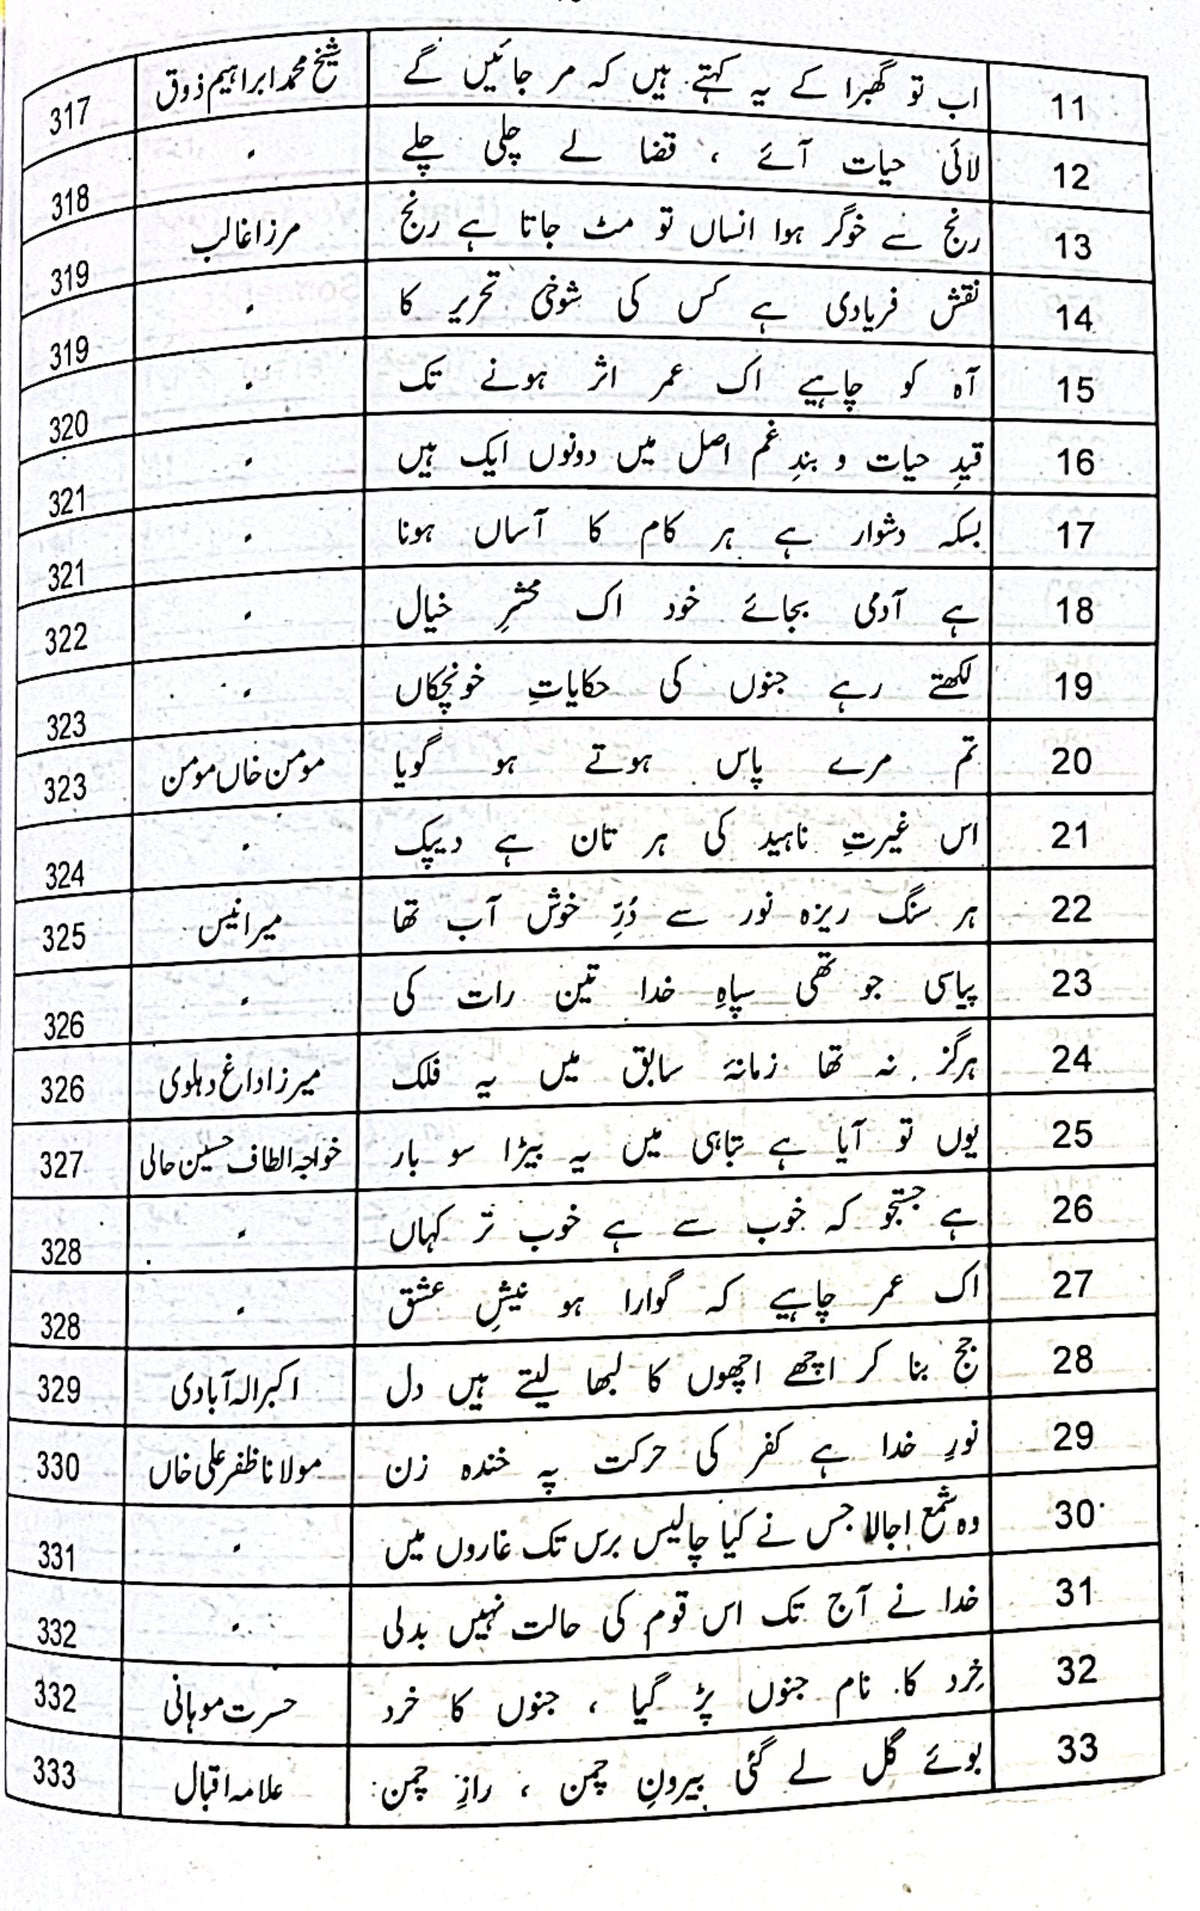 11 اب تو گھبرا کے یہ کہتے ہیں کہ مر جائیں گے شیخ محمد ابراہیم ذوق 317
12 لائی حیات آئے ، قضا لے چلی چلے " 318
13 رنج سے خوگر ہوا انساں تو مٹ جاتا ہے رنج مرزا غالب 319
14 نقش فریادی ہے کس کی شوخیٔ تحریر کا " 319
15 آہ کو چاہیے اک عمر اثر ہونے تک " 320
16 قیدِ حیات و بندِ غم اصل میں دونوں ایک ہیں " 321
17 بسکہ دشوار ہے ہر کام کا آساں ہونا " 321
18 ہے آدمی بجائے خود اک محشرِ خیال " 322
19 لکھتے رہے جنوں کی حکایاتِ خونچکاں " 323
20 تم مرے پاس ہوتے ہو گویا مومن خاں مومن 323
21 اس غیرتِ ناہید کی ہر تان ہے دیپک " 324
22 ہر سنگ ریزہ نور سے دُرِّ خوش آب تھا میر انیس 325
23 پیاسی جو تھی سپاہِ خدا تین رات کی " 326
24 ہرگز نہ تھا زمانۂ سابق میں یہ فلک میرزا داغ دہلوی 326
25 یوں تو آیا ہے تباہی میں یہ بیڑا سو بار خواجہ الطاف حسین حالی 327
26 ہے جستجو کہ خوب سے ہے خوب تر کہاں " 328
27 اک عمر چاہیے کہ گوارا ہو نیشِ عشق " 328
28 جج بنا کر اچھے اچھوں کا لبھا لیتے ہیں دل اکبر الہ آبادی 329
29 نورِ خدا ہے کفر کی حرکت پہ خندہ زن مولانا ظفر علی خاں 330
30 وہ شمع اجالا جس نے کیا چالیس برس تک غاروں میں " 331
31 خدا نے آج تک اس قوم کی حالت نہیں بدلی " 332
32 خِرد کا نام جنوں پڑ گیا ، جنوں کا خرد حسرت موہانی 332
33 بوئے گل لے گئی بیرونِ چمن ، رازِ چمن علامہ اقبال 333